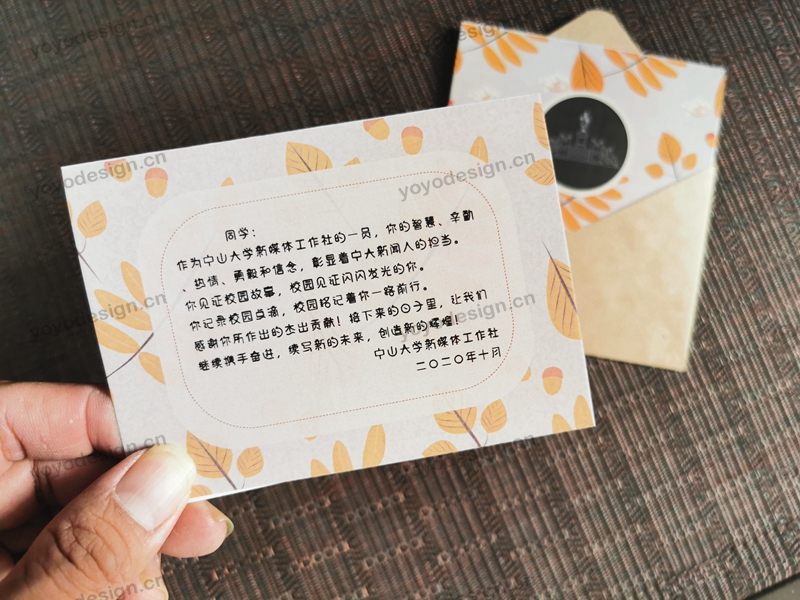 同学：
作为中山大学新媒体工作社的一员，你的智慧、辛勤
、热情、勇毅和信念，彰显着中大新闻人的担当。
你见证校园故事，校园见证闪闪发光的你。
你记录校园点滴，校园铭记着你一路前行。
感谢你所作出的杰出贡献！接下来的日子里，让我们
继续携手奋进，续写新的未来，创造新的辉煌！
中山大学新媒体工作社
二〇二〇年十月
yoyodesign.cn
yoyodesign.cn
yoyodesign.cn
yoyodesign.cn
yoyodesign.cn
yoyodesign.cn
yoyodesign.cn
yoyodesign.cn
yoyodesign.cn
yoyodesign.cn